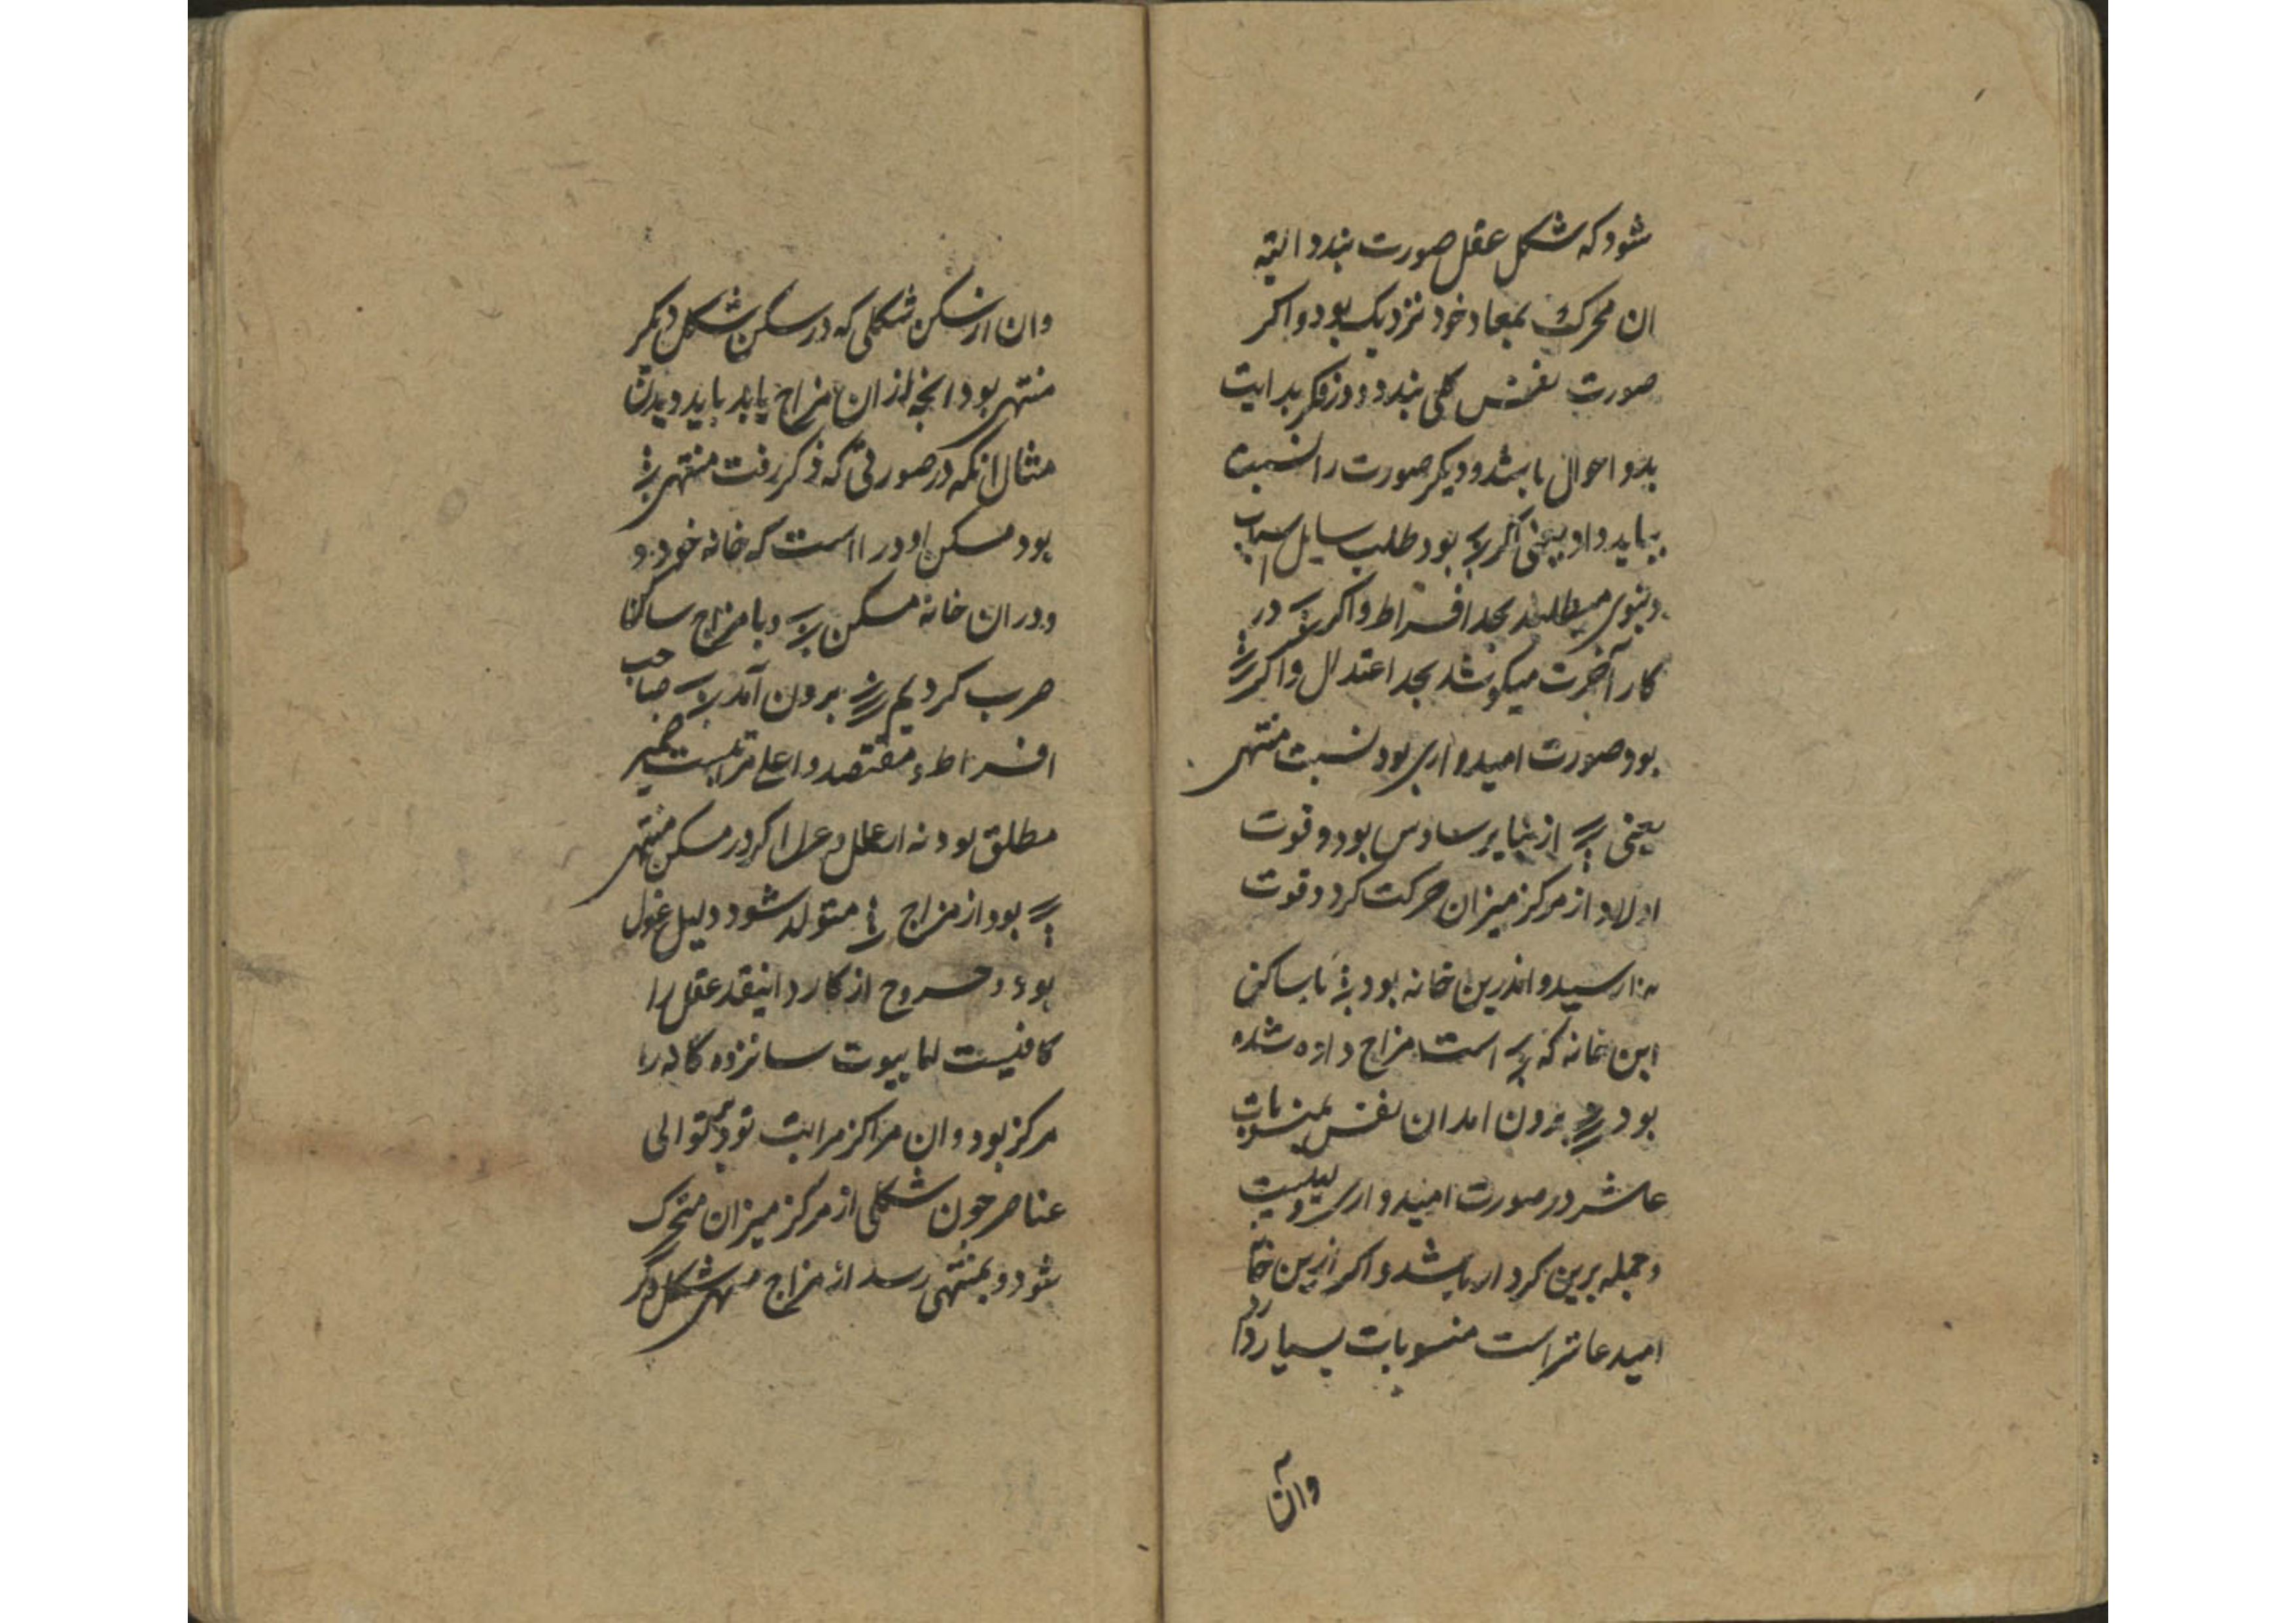 شود که شکل عقل صورت بندد البته
ان محرک بمعاد خود نزدیک بود و اکر
صورت نفس کلی بندد دوز فکر بدایت
بدو احوال باشد و دیکر صورت را نسبت
بباید داد یعنی اکر بود طلب سایل اسباب
دنیوی میطلبد بحد افراط و اکر در
کار آخرت میکوشد بحد اعتدال و اکر
بود صورت امیدواری بود نسبت منتهی
یعنی از بنایر سادس بود و قوت
اولاد از مرکز میزان حرکت کرد و قوت
رسید و اندرین خانه بود با ساکن
این خانه که است مزاج داده شده
بود برون امد ان نفس بمنسوبات
عاشر در صورت امیدواری
و جمله برین کردار باشد و اکر ازین خانه
امید عاشر است منسوبات بسیار دارد
وان
وان از مسکن شکلی که در مسکن شکل دیکر
منتهی بود انجه از ان مزاج یابد باید دیدن
مثال انکه در صورتی که ذکر رفت منتهی
بود مسکن او در است که خانه خود
و در ان خانه مسکن و با مزاج ساکن
ضرب کردیم برون آمد صاحب
افراط و مقتصد و اعلی مراتبست ضمیر
مطلق بود نه اکر در مسکن منتهی
بود از مزاج متولد شود دلیل غول
بود و خروج از کار و اینقدر عقل را
کافیست اما بیوت سانزده کانه را
مرکز بود و ان مراکز مراتب بود بتوالی
عناصر جون شکلی از مرکز میزان متحرک
شود و بمنتهی رسد از مزاج منتهی شکل دکر